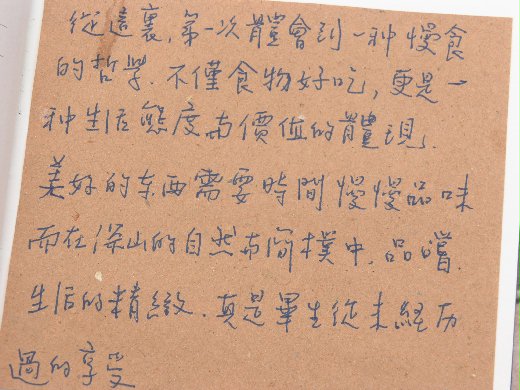 從這裏,第一次體會到一种慢食
的哲學.不僅食物好吃,更是一
种生活態度与價值的體現.
美好的东西需要時間慢慢品味
而在深山的自然与简樸中.品嚐.
生活的精緻.真是畢生從未經历
過的享受